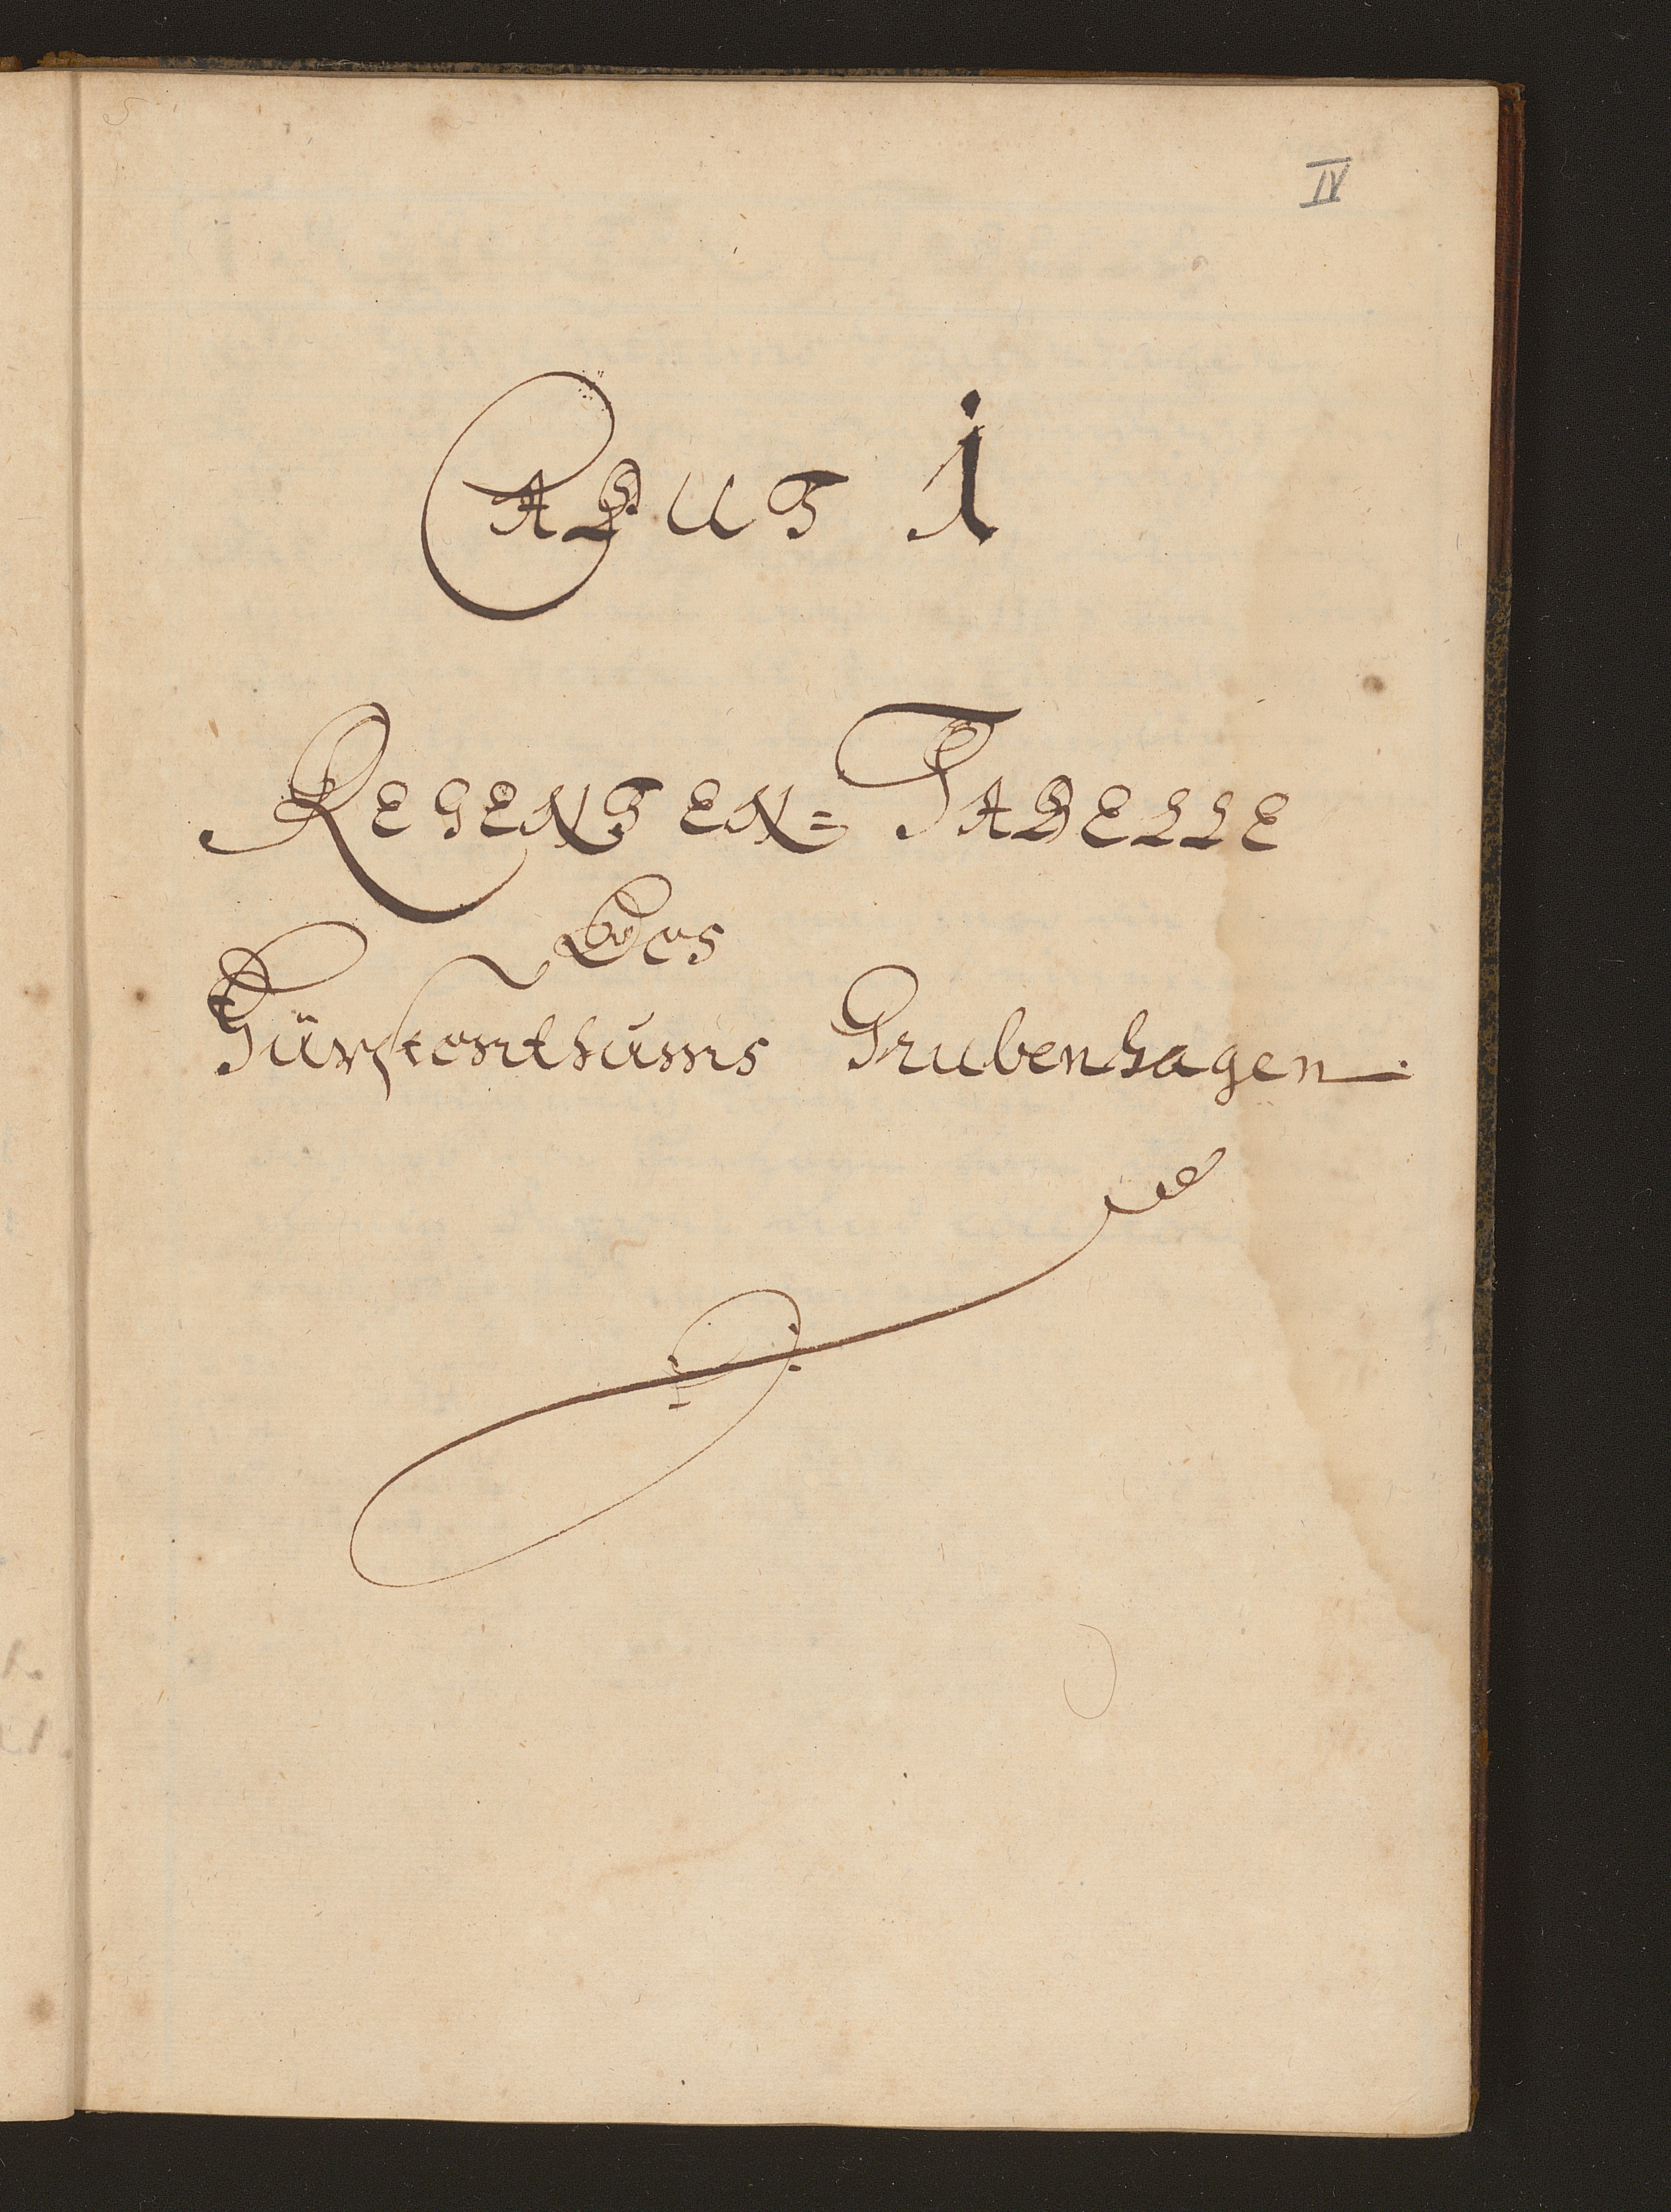 IV
CAPUT 1
REGENTEN=TABELLE
Des
Fürstenthums Grubenhagen.